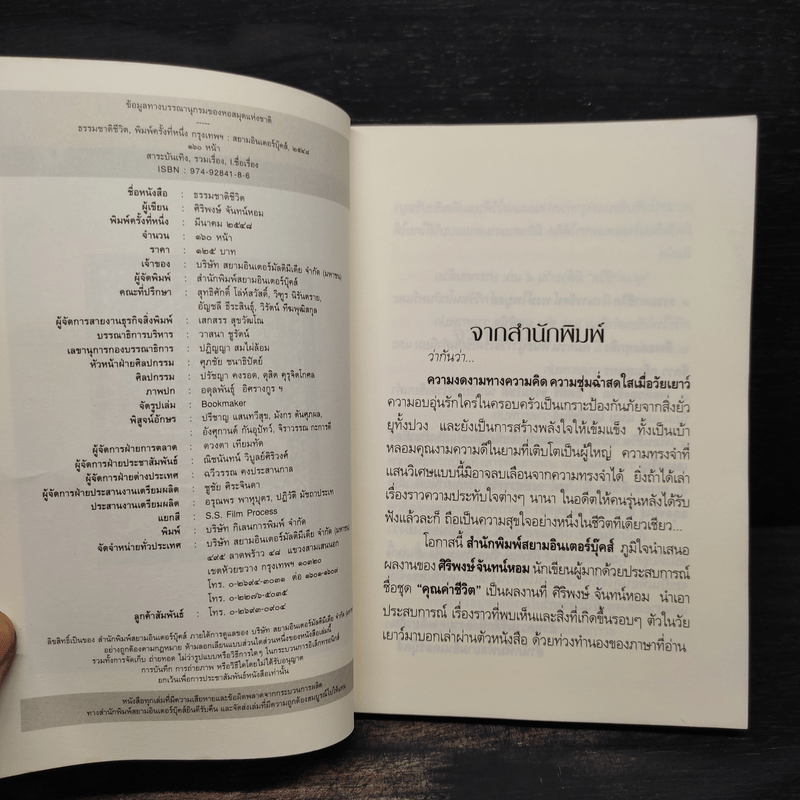 ข้อมูลทางบรรณานุกรมของหอสมุดแห่งชาติ
-----
ธรรมชาติชีวิต, พิมพ์ครั้งที่หนึ่ง กรุงเทพฯ : สยามอินเตอร์บุ๊คส์, ๒๕๔๘
๑๖๐ หน้า
สาระบันเทิง, รวมเรื่อง, I.ชื่อเรื่อง
ISBN : 974-92841-8-6
ชื่อหนังสือ : ธรรมชาติชีวิต
ผู้เขียน : ศิริพงษ์ จันทน์หอม
พิมพ์ครั้งที่หนึ่ง : มีนาคม ๒๕๔๘
จำนวน : ๑๖๐ หน้า
ราคา : ๑๒๕ บาท
เจ้าของ : บริษัท สยามอินเตอร์มัลติมีเดีย จำกัด (มหาชน)
ผู้จัดพิมพ์ : สำนักพิมพ์สยามอินเตอร์บุ๊คส์
คณะที่ปรึกษา : สุทธิศักดิ์ โล่ห์สวัสดิ์, วิฑูร นิรันตราย,
อัญชลี ธีระสินธุ์, วิรัตน์ ทีฆพุฒิสกุล
ผู้จัดการสายงานธุรกิจสิ่งพิมพ์ : เสกสรร สุขวัฒโณ
บรรณาธิการบริหาร : วาสนา ชูรัตน์
เลขานุการกองบรรณาธิการ : ปฏิญญา สมไผ่ล้อม
หัวหน้าฝ่ายศิลปกรรม : ศุภชัย ชนาธิปัตย์
ศิลปกรรม : ปรัชญา คงรอด, ดุสิต คุรุจิตโกศล
ภาพปก : อดุลพันธุ์ อิศรางกูร ฯ
จัดรูปเล่ม : Bookmaker
พิสูจน์อักษร : ปรีชาญ แสนทวีสุข, มังกร ตันศุภผล,
อังศุกานต์ กันอุปัทว์, จิราวรรณ กะการดี
ผู้จัดการฝ่ายการตลาด : ดวงตา เทียมทัด
ผู้จัดการฝ่ายประชาสัมพันธ์ : ณิชนันทน์ วิบูลย์ศิริวงศ์
ผู้จัดการฝ่ายต่างประเทศ : ฉวีวรรณ คงประสานกาล
ผู้จัดการฝ่ายประสานงานเตรียมผลิต : ชูชัย ศิระจินดา
ประสานงานเตรียมผลิต : อรุณพร พาหุบุตร, ปฏิวัติ มัชถาประเท
แยกสี : S.S. Film Process
พิมพ์ : บริษัท กิเลนการพิมพ์ จำกัด
จัดจำหน่ายทั่วประเทศ : บริษัท สยามอินเตอร์มัลติมีเดีย จำกัด (มหาชน)
๔๙๕ ลาดพร้าว ๔๘ แขวงสามเสนนอก
เขตห้วยขวาง กรุงเทพฯ ๑๐๓๒๐
โทร. ๐-๒๖๙๔-๓๐๓๑ ต่อ ๑๖๐๑-๑๖๐๙
โทร. ๐-๒๒๗๖-๕๐๓๕
ลูกค้าสัมพันธ์ : โทร. ๐-๒๖๙๓-๐๙๐๔
ลิขสิทธิ์เป็นของ สำนักพิมพ์สยามอินเตอร์บุ๊คส์ ภายใต้การดูแลของ บริษัท สยามอินเตอร์มัลติมีเดีย จำกัด
อย่างถูกต้องตามกฎหมาย ห้ามลอกเลียนแบบส่วนใดส่วนหนึ่งของหนังสือเล่มนี้
รวมทั้งการจัดเก็บ ถ่ายทอด ไม่ว่ารูปแบบหรือวิธีการใดๆ ในกระบวนการอิเล็กทรอนิกส์
การบันทึก การถ่ายภาพ หรือวิธีใดโดยไม่ได้รับอนุญาต
ยกเว้นเพื่อการประชาสัมพันธ์หนังสือเท่านั้น
หนังสือทุกเล่มที่มีความเสียหายและข้อผิดพลาดจากกระบวนการผลิต
ทางสำนักพิมพ์สยามอินเตอร์บุ๊คส์ยินดีรับคืน และจัดส่งเล่มที่มีความถูกต้องสมบูรณ์ไปให้แทน
จากสำนักพิมพ์
ว่ากันว่า...
ความงดงามทางความคิด ความชุ่มฉ่ำสดใสเมื่อวัยเยาว์
ความอบอุ่นรักใคร่ในครอบครัวเป็นเกราะป้องกันภัยจากสิ่งยั่ว
ยุทั้งปวง และยังเป็นการสร้างพลังใจให้เข้มแข็ง ทั้งเป็นเบ้า
หลอมคุณงามความดีในยามที่เติบโตเป็นผู้ใหญ่ ความทรงจำที่
แสนวิเศษแบบนี้มิอาจลบเลือนจากความทรงจำได้ ยิ่งถ้าได้เล่า
เรื่องราวความประทับใจต่างๆ นานา ในอดีตให้คนรุ่นหลังได้รับ
ฟังแล้วละก็ ถือเป็นความสุขใจอย่างหนึ่งในชีวิตทีเดียวเชียว...
โอกาสนี้ สำนักพิมพ์สยามอินเตอร์บุ๊คส์ ภูมิใจนำเสนอ
ผลงานของ ศิริพงษ์ จันทน์หอม นักเขียนผู้มากด้วยประสบการณ์
ชื่อชุด “คุณค่าชีวิต” เป็นผลงานที่ ศิริพงษ์ จันทน์หอม นำเอา
ประสบการณ์ เรื่องราวที่พบเห็นและสิ่งที่เกิดขึ้นรอบๆ ตัวในวัย
เยาว์มาบอกเล่าผ่านตัวหนังสือ ด้วยท่วงทำนองของภาษาที่อ่าน